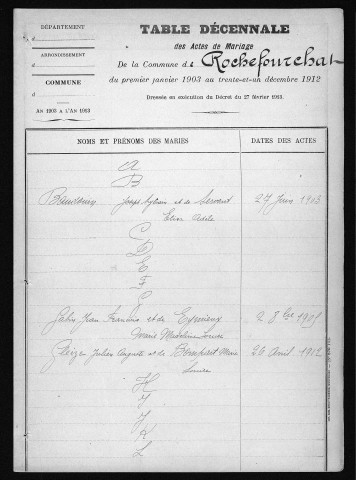 DÉPARTEMENT
ARRONDISSEMENT
COMMUNE
AN 1903 A L'AN 1913
TABLE DÉCENNALE
des Actes de Mariage
De la Commune de Rochefourchat
du premier janvier 1903 au trente-et-un décembre 1912
Dressée en exécution du Décret du 27 février 1903.
NOMS ET PRÉNOMS DES MARIÉS
DATES DES ACTES
A
B
Joseph Sylvain et de Servant 27 Juin 1903
Elise Adèle
C
D
E
F
G
Jean François et de Eymieux 2 8bre 1905
Marie Madeleine Louise
Gleizen Julien Auguste et de Bompard Marie 26 Avril 1912
Louise
H
I
J
K
L